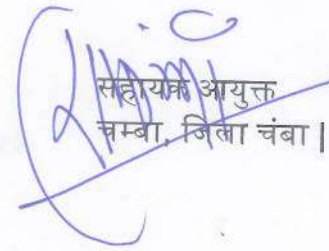 सहायक आयुक्त
चम्बा, जिला चंबा |